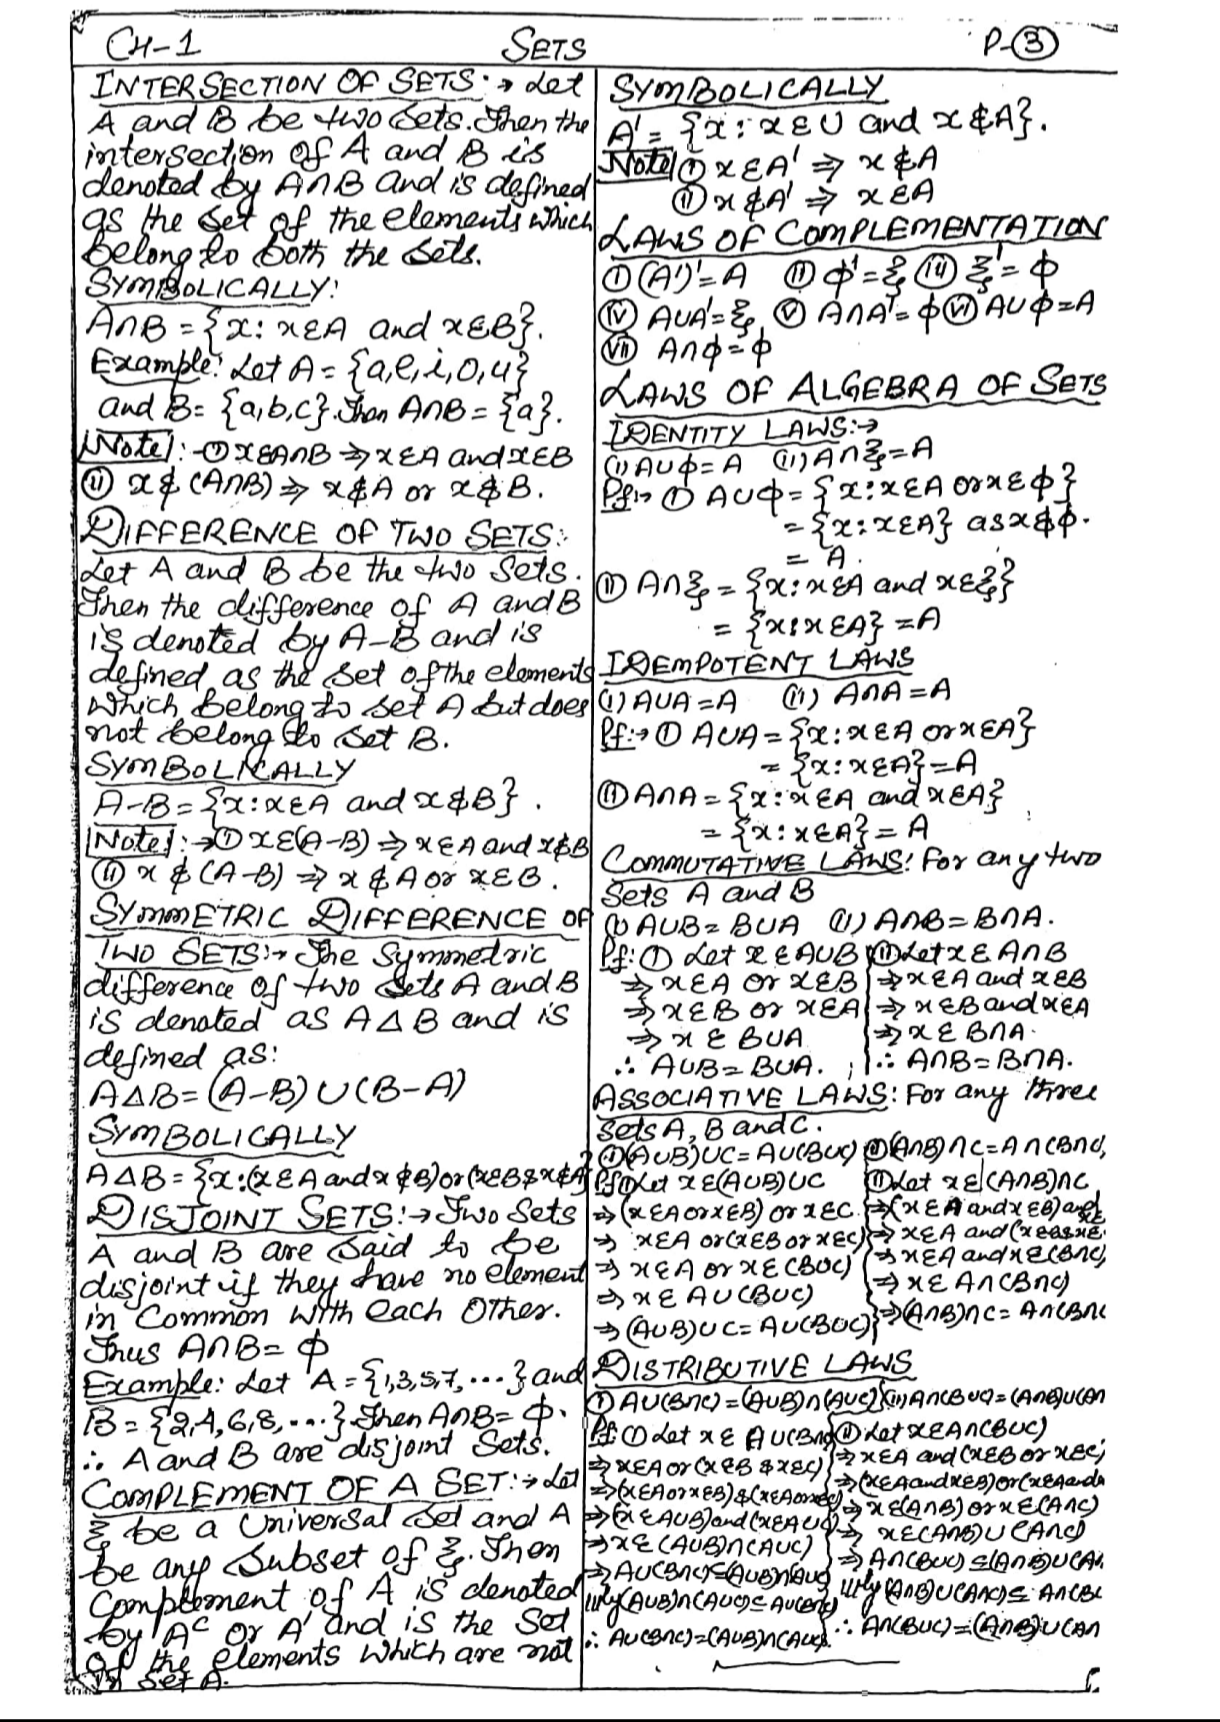 CH-1 SETS P-③
INTERSECTION OF SETS:→ Let
A and B be two sets. Then the
intersection of A and B is
denoted by A∩B and is defined
as the set of the elements which
belong to both the sets.
SYMBOLICALLY:
A∩B = {x: x∈A and x∈B}.
Example: Let A = {a,e,i,o,u}
and B = {a,b,c}. Then A∩B = {a}.
Note:- (i) x∈A∩B ⇒ x∈A and x∈B
(ii) x∉(A∩B) ⇒ x∉A or x∉B.
DIFFERENCE OF TWO SETS:
Let A and B be the two sets.
Then the difference of A and B
is denoted by A-B and is
defined as the set of the elements
which belong to set A but does
not belong to set B.
SYMBOLICALLY
A-B = {x: x∈A and x∉B}.
Note:→ (i) x∈(A-B) ⇒ x∈A and x∉B
(ii) x∉(A-B) ⇒ x∉A or x∈B.
SYMMETRIC DIFFERENCE OF
TWO SETS:→ The symmetric
difference of two sets A and B
is denoted as A△B and is
defined as:
A△B = (A-B)∪(B-A)
SYMBOLICALLY
A△B = {x:(x∈A and x∉B) or (x∈B & x∉A)
DISJOINT SETS:→ Two Sets
A and B are said to be
disjoint if they have no element
in Common with each Other.
Thus A∩B = φ
Example: Let A = {1,3,5,7,...} and
B = {2,4,6,8,...}. Then A∩B = φ.
∴ A and B are disjoint Sets.
COMPLEMENT OF A SET:→ Let
ξ be a Universal Set and A
be any Subset of ξ. Then
Complement of A is denoted
by Aᶜ or A' and is the Set
of the elements which are not
in set A.
SYMBOLICALLY
A' = {x: x∈U and x∉A}.
Note (i) x∈A' ⇒ x∉A
(ii) x∉A' ⇒ x∈A
LAWS OF COMPLEMENTATION
(i) (A')' = A (ii) φ' = ξ (iii) ξ' = φ
(iv) A∪A' = ξ (v) A∩A' = φ (vi) A∪φ = A
(vii) A∩φ = φ
LAWS OF ALGEBRA OF SETS
IDENTITY LAWS:→
(i) A∪φ = A (ii) A∩ξ = A
Pf:→ (i) A∪φ = {x: x∈A or x∈φ}
= {x: x∈A} as x∉φ.
= A.
(ii) A∩ξ = {x: x∈A and x∈ξ}
= {x: x∈A} = A
IDEMPOTENT LAWS
(i) A∪A = A (ii) A∩A = A
Pf:→ (i) A∪A = {x: x∈A or x∈A}
= {x: x∈A} = A
(ii) A∩A = {x: x∈A and x∈A}
= {x: x∈A} = A
COMMUTATIVE LAWS: For any two
sets A and B
(i) A∪B = B∪A (ii) A∩B = B∩A.
Pf: (i) Let x∈A∪B (ii) Let x∈A∩B
⇒ x∈A or x∈B ⇒ x∈A and x∈B
⇒ x∈B or x∈A ⇒ x∈B and x∈A
⇒ x∈B∪A ⇒ x∈B∩A.
∴ A∪B = B∪A. ∴ A∩B = B∩A.
ASSOCIATIVE LAWS: For any three
sets A, B and C.
(i) (A∪B)∪C = A∪(B∪C) (ii) (A∩B)∩C = A∩(B∩C)
Pf (i) Let x∈(A∪B)∪C (ii) Let x∈(A∩B)∩C
⇒ (x∈A or x∈B) or x∈C ⇒ (x∈A and x∈B) and x∈
⇒ x∈A or (x∈B or x∈C) ⇒ x∈A and (x∈B & x∈
⇒ x∈A or x∈(B∪C) ⇒ x∈A and x∈(B∩C)
⇒ x∈A∪(B∪C) ⇒ x∈A∩(B∩C)
⇒ (A∪B)∪C = A∪(B∪C) ⇒ (A∩B)∩C = A∩(B∩C
DISTRIBUTIVE LAWS
(i) A∪(B∩C) = (A∪B)∩(A∪C) (ii) A∩(B∪C) = (A∩B)∪(A∩
Pf: (i) Let x∈A∪(B∩C) (ii) Let x∈A∩(B∪C)
⇒ x∈A or (x∈B & x∈C) ⇒ x∈A and (x∈B or x∈C)
⇒ (x∈A or x∈B) & (x∈A or x∈C) ⇒ (x∈A and x∈B) or (x∈A and
⇒ (x∈A∪B) and (x∈A∪C) ⇒ x∈(A∩B) or x∈(A∩C)
⇒ x∈(A∪B)∩(A∪C) ⇒ x∈(A∩B)∪(A∩C)
⇒ A∪(B∩C) ⊆ (A∪B)∩(A∪C) ⇒ A∩(B∪C) ⊆ (A∩B)∪(A∩
llly (A∪B)∩(A∪C) ⊆ A∪(B∩C) llly (A∩B)∪(A∩C) ⊆ A∩(B∪
∴ A∪(B∩C) = (A∪B)∩(A∪C). ∴ A∩(B∪C) = (A∩B)∪(A∩